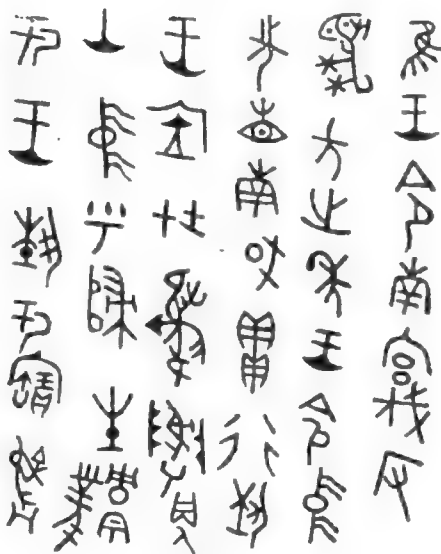 隹王令南宮伐反
虎方之年王令中
先省南或貫行埶
王应在夔真
山中乎歸生鳳
于王埶于寶彝